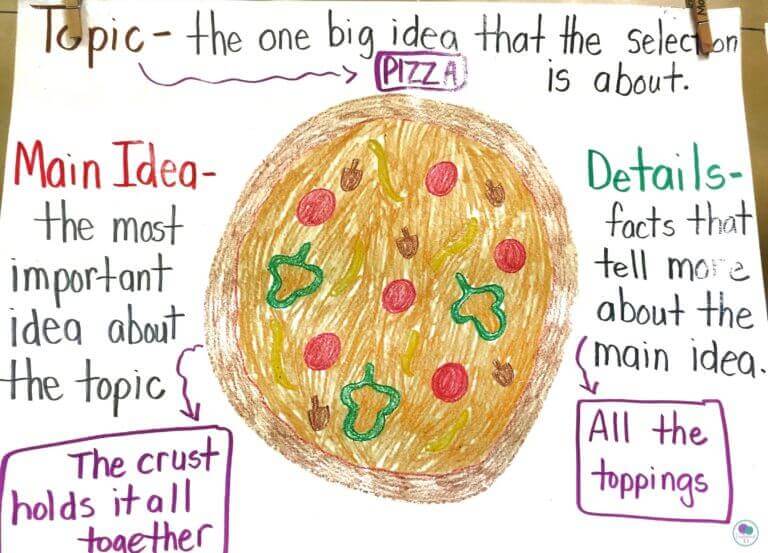 Topic- the one big idea that the selection
PIZZA is about.
Main Idea-
the most
important
idea about
the topic
The crust
holds it all
together
Details-
facts that
tell more
about the
main idea.
All the
toppings